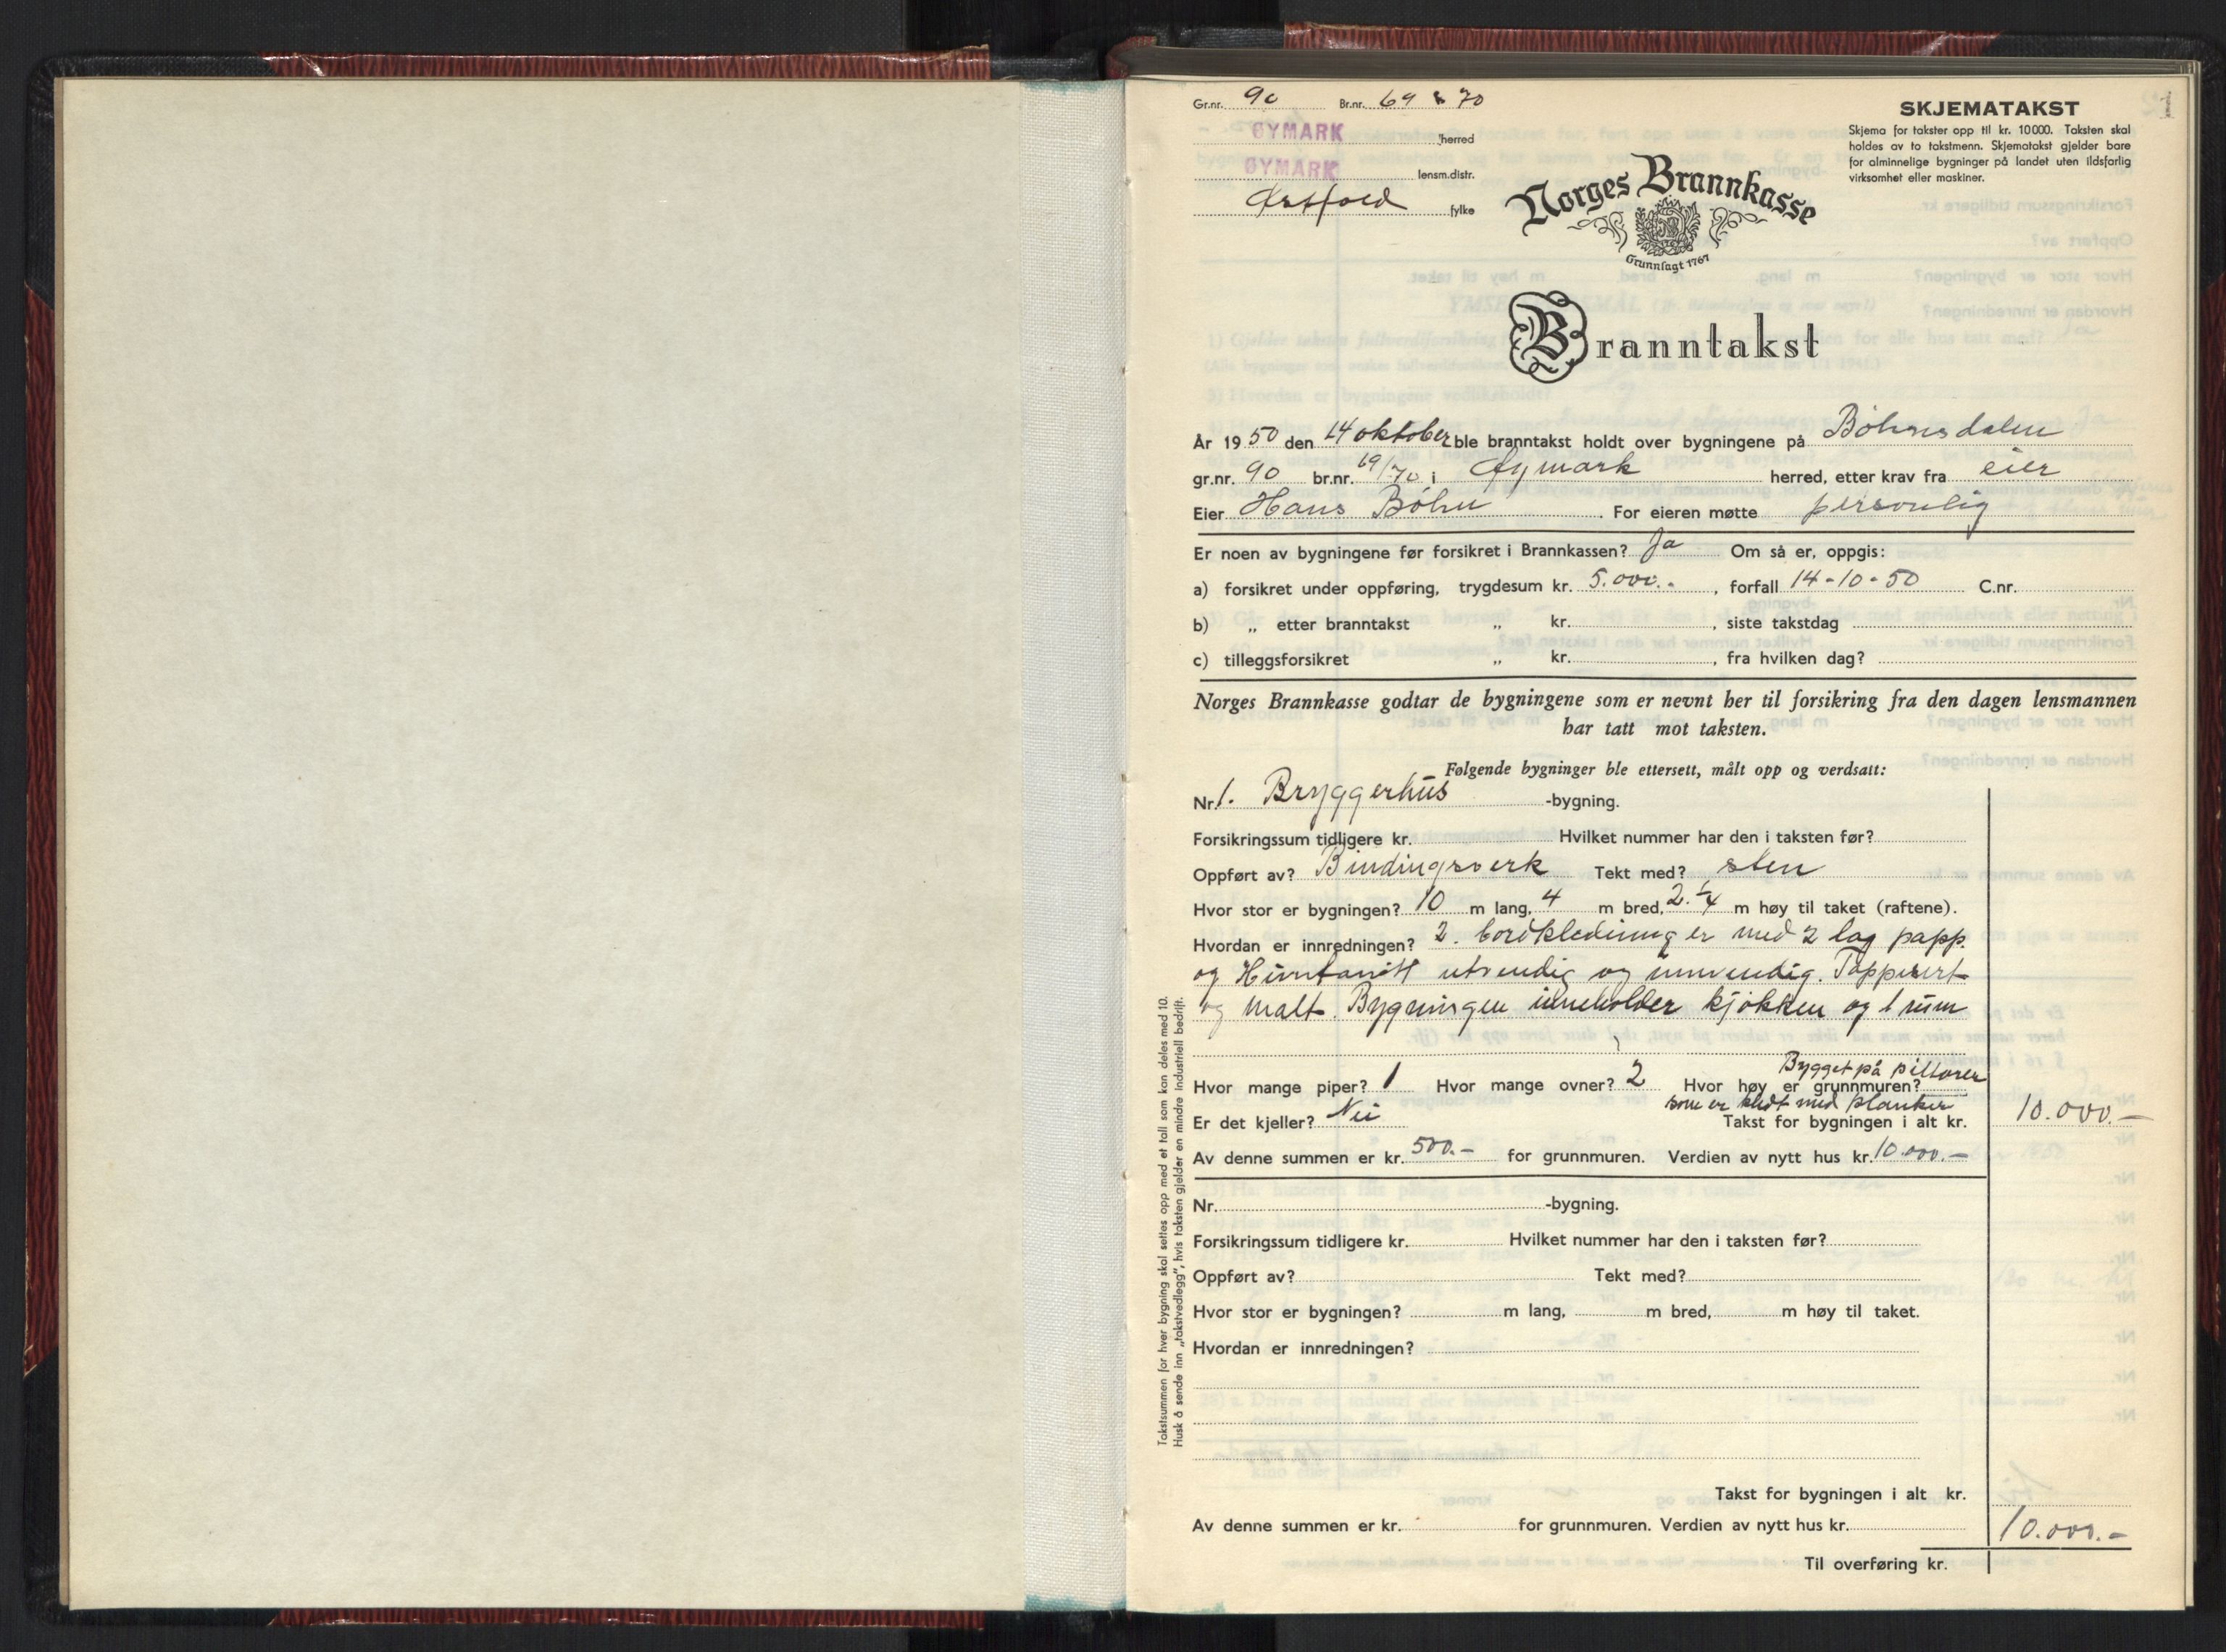 1
Gr.nr. 90 Br.nr. 69 & 70
ØYMARK herred
ØYMARK lensm.distr.
Østfold fylke
SKJEMATAKST
Skjema for takster opp til kr. 10000. Taksten skal
holdes av to takstmenn. Skjematakst gjelder bare
for alminnelige bygninger på landet uten ildsfarlig
virksomhet eller maskiner.
Norges Brannkasse
Grunnlagt 1767
Branntakst
År 1950 den 14 oktober ble branntakst holdt over bygningene på Böhnsdalen
gr.nr. 90 br.nr. 69/70 i Øymark herred, etter krav fra eier
Eier Hans Böhn For eieren møtte personlig
Er noen av bygningene før forsikret i Brannkassen? Ja Om så er, oppgis:
a) forsikret under oppføring, trygdesum kr. 5.000.-, forfall 14-10-50 C.nr.
b) „ etter branntakst „ kr. , siste takstdag
c) tilleggsforsikret „ kr. , fra hvilken dag?
Norges Brannkasse godtar de bygningene som er nevnt her til forsikring fra den dagen lensmannen
har tatt mot taksten.
Følgende bygninger ble ettersett, målt opp og verdsatt:
Nr. 1. Bryggerhus -bygning.
Forsikringssum tidligere kr. Hvilket nummer har den i taksten før?
Oppført av? Bindingsverk Tekt med? sten
Hvor stor er bygningen? 10 m lang, 4 m bred, 2.¼ m høy til taket (raftene).
Hvordan er innredningen? 2. bordkledninger med 2 lag papp.
og utvendig og innvendig. Tappesert
og malt. Bygningen inneholder kjökken og 1 rum
Bygget på pillarer
Hvor mange piper? 1 Hvor mange ovner? 2 Hvor høy er grunnmuren?
som er kledt med planker
Er det kjeller? Nei Takst for bygningen i alt kr. 10.000.-
Av denne summen er kr. 500.- for grunnmuren. Verdien av nytt hus kr. 10.000.-
Nr. -bygning.
Forsikringssum tidligere kr. Hvilket nummer har den i taksten før?
Oppført av? Tekt med?
Hvor stor er bygningen? m lang, m bred, m høy til taket.
Hvordan er innredningen?
Takst for bygningen i alt kr.
Av denne summen er kr. for grunnmuren. Verdien av nytt hus kr.
10.000.-
Til overføring kr.
Takstsummen for hver bygning skal settes opp med et tall som kan deles med 10.
Husk å sende inn „takstvedlegg", hvis taksten gjelder en mindre industriell bedrift.